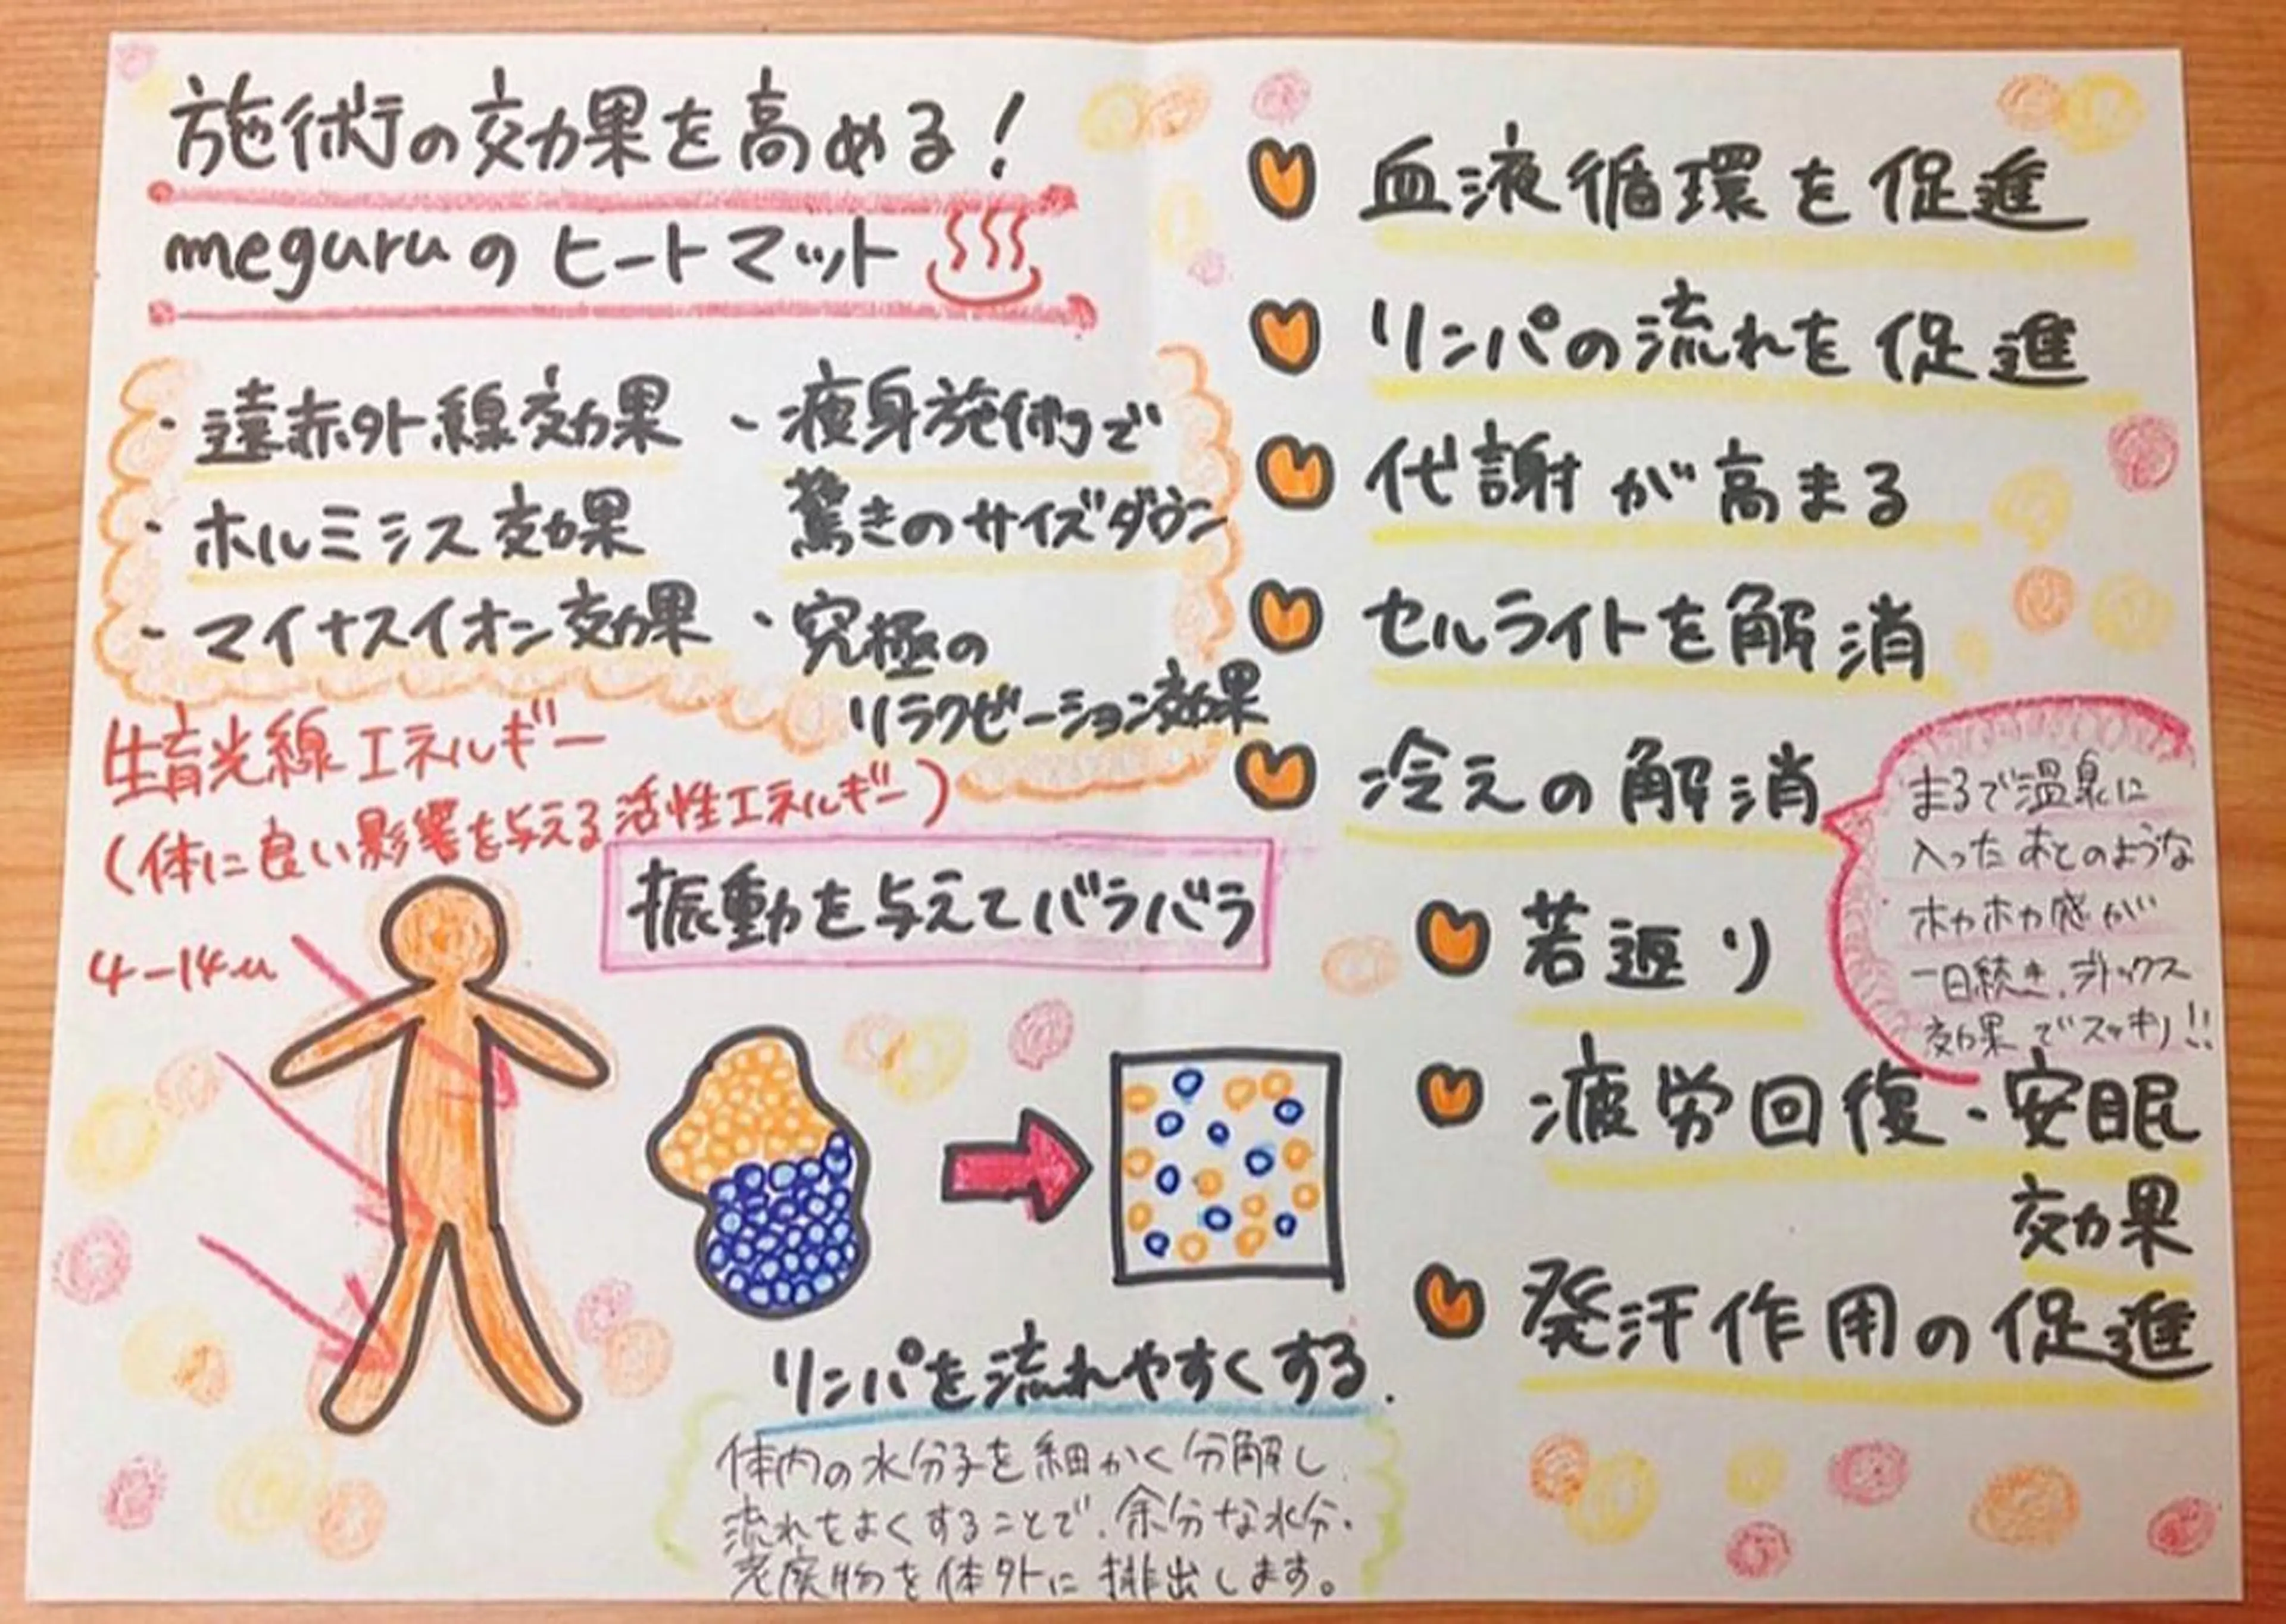 施術の効果を高める!
meguruのヒートマット
・遠赤外線効果
・ホルミシス効果
・マイナスイオン効果
・痩身施術で
驚きのサイズダウン
・究極の
リラクゼーション効果
生育光線エネルギー
(体に良い影響を与える活性エネルギー)
4-14μ
振動を与えてバラバラ
リンパを流れやすくする.
体内の水分子を細かく分解し
流れをよくすることで、余分な水分・
老廃物を体外に排出します。
血液循環を促進
リンパの流れを促進
代謝が高まる
セルライトを解消
冷えの解消
まるで温泉に
入ったあとのような
ホカホカ感が
一日続き、デトックス
効果でスッキリ!!
若返り
疲労回復・安眠
効果
発汗作用の促進